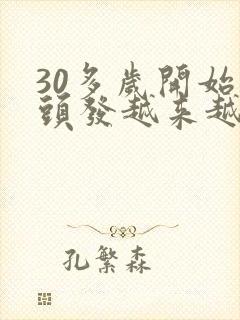 30多歲開始
頭發越來越
孔繁森